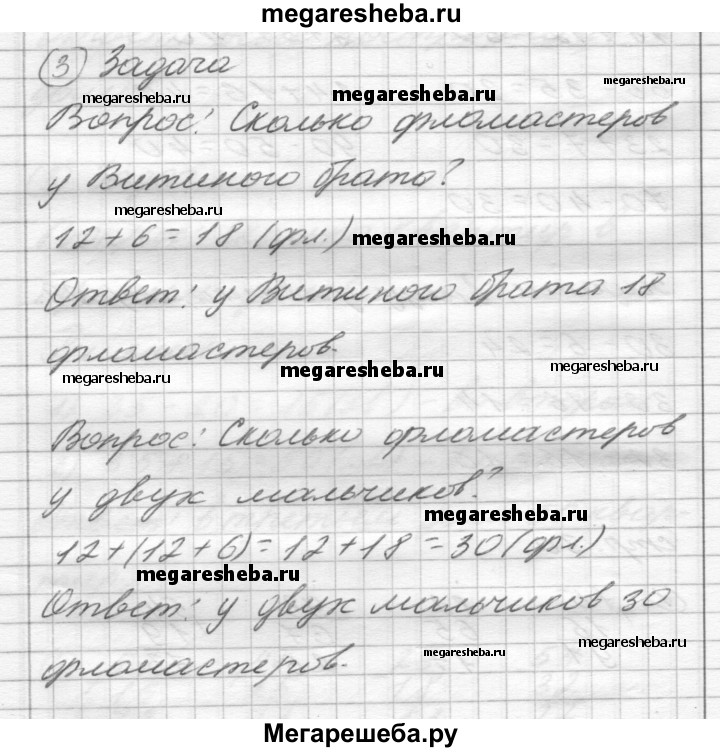 megaresheba.ru
③ Задача
megaresheba.ru
megaresheba.ru
megaresheba.ru
Вопрос: Сколько фломастеров
у Витиного брата?
megaresheba.ru
12 + 6 = 18 (фл.)
megaresheba.ru
Ответ: у Витиного брата 18
фломастеров.
megaresheba.ru
megaresheba.ru
megaresheba.ru
Вопрос: Сколько фломастеров
у двух мальчиков?
megaresheba.ru
12+(12+6)=12+18=30(фл.)
megaresheba.ru
Ответ: у двух мальчиков 30
фломастеров.
megaresheba.ru
megaresheba.ru
Мегарешеба.ру